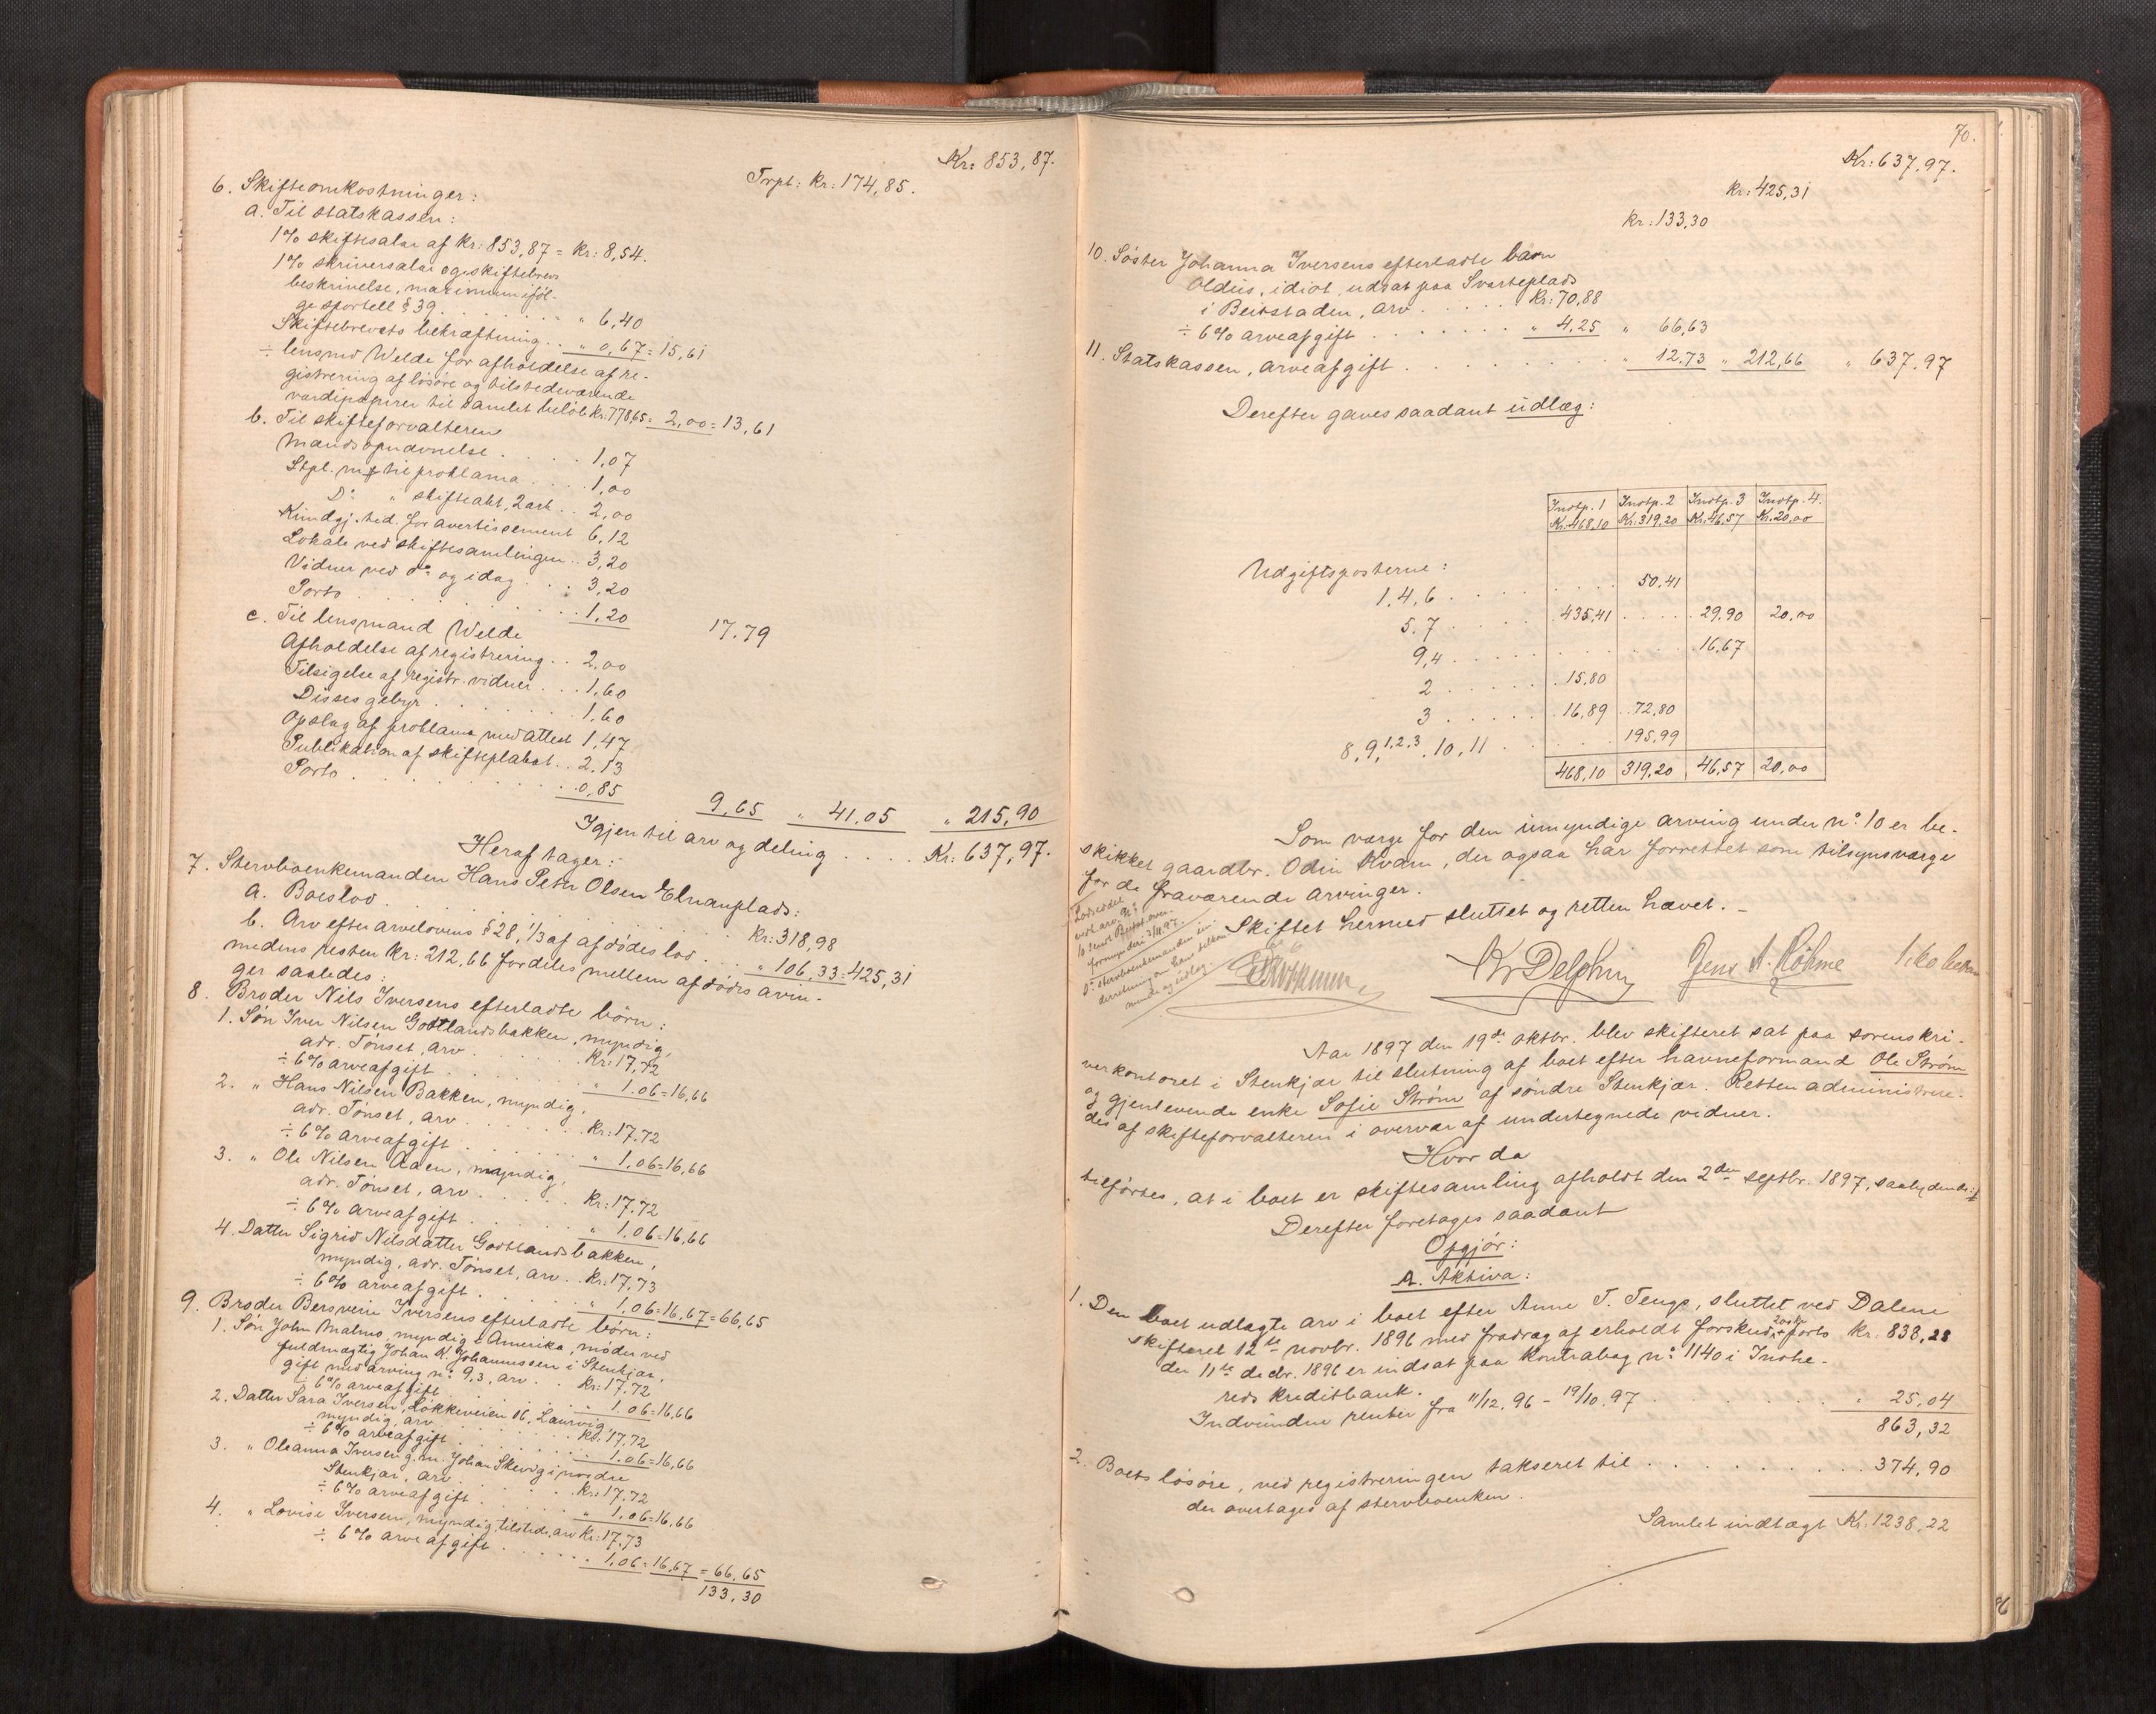 Kr: 853,87.
Trpt: Kr: 174,85.
6. Skifteomkostninger:
a. Til statskassen:
1% skiftesalær af Kr: 853,87 = Kr: 8,54.
1% skriversalær og skiftebrevs
beskrivelse, maximum iføl-
ge sportell § 39 . . . . „ 6,40
Skiftebrevets bekræftning . . „ 0,67 = 15,61
÷ lensmd Welde for afholdelse af re-
gistrering af løsøre og tilstedeværende
værdipapirer til samlet beløb Kr: 778,65 = 2,00 = 13,61
b. Til skifteforvalteren
Mands opnævnelse . . . . 1,07
Stpl. m/ til proklama . . . 1,00
Do „ skifteakt, 2 ark . . 2,00
Kundgj. tid. for avertissement 6,12
Lokale ved skiftesamlingen . . 3,20
Vidner ved do og idag . . . 3,20
Porto . . . . . . 1,20
17.79
c. Til lensmand Welde
Afholdelse af registrering . . 2,00
Tilsigelse af registr. vidner . . . 1,60
Disses gebyr . . . . . 1,60
Opslag af proklama med attest 1,47
Publikation af skifteplakat . . 2,13
Porto . . . . . . 0,85
9,65 „ 41,05 „ 215,90
Igjen til arv og deling . . . . Kr: 637,97.
Heraf tager:
7. Stervboenkemanden Hans Peter Olsen Elnanplads:
a. Boeslod . . . . . . Kr: 318,98
b. Arv efter arvelovens § 28, 1/3 af afdødes lod . . . „ 106,33 = 425,31
medens resten Kr: 212,66 fordeles mellem afdødes arvin-
ger saaledes:
8. Broder Nils Iversens efterladte børn:
1. Søn Iver Nilsen Godtlandsbakken, myndig,
adr. Tønset, arv . . . . Kr: 17,72
÷ 6% arveafgift . . . . „ 1.06 = 16,66
2. „ Hans Nilsen Bakken, myndig,
adr. Tønset, arv . . . . Kr: 17.72
÷ 6% arveafgift . . . . „ 1,06 = 16,66
3. „ Ole Nilsen Aaen, myndig,
adr. Tønset, arv . . . . Kr: 17.72
÷ 6% arveafgift . . . . „ 1,06 = 16,66
4. Datter Sigrid Nilsdatter Godtlandsbakken,
myndig, adr. Tønset, arv . . Kr: 17,73
÷ 6% arveafgift . . . . „ 1,06 = 16,67 = 66,65
9. Broder Bersvein Iversens efterladte børn:
1. Søn John Malmo, myndig i Amerika, møder ved
fuldmægtig Johan K. Johannessen i Stenkjær,
gift med arving no 9,3, arv . . Kr: 17,72
÷ 6% arveafgift . . . . „ 1.06 = 16,66
2. Datter Sara Iversen, Løkkeveien 16, Laurvig
myndig, arv . . . . Kr. 17,72
÷ 6% arveafgift . . . . 1.06 = 16,66
3. „ Oleanna Iversen g. m. Johan Skevig i nordre
Stenkjær, arv . . . . Kr: 17,72
÷ 6% arveafgift . . . . „ 1,06 = 16,66
4. „ Lovise Iversen, myndig, tilstede, arv Kr: 17,73
÷ 6% arveafgift . . . . 1,06 = 16,67 = 66,65
133,30
70.
Kr: 637,97.
Kr: 425,31
Kr: 133,30
10. Søster Johanna Iversens efterladte barn
Oldus, idiot, udsat paa Svarteplads
i Beitstaden, arv . . . . Kr: 70,88
÷ 6% arveafgift . . . . „ 4,25 „ 66,63
11. Statskassen, arveafgift . . . . „ 12.73 „ 212,66 „ 637,97
Derefter gaves saadant udlæg:
Indtp. 1 Indtp. 2 Indtp. 3 Indtp. 4.
Kr. 468,10 Kr: 319,20 Kr: 46,57 Kr. 20,00
Udgiftsposterne:
1, 4, 6 . . . . 50,41
5. 7 . . . . 435,41 . . . . 29.90 20,00
9,4 . . . . 16,67
2 . . . . 15,80
3 . . . . 16,89 . . 72,80
8, 9,1,2,3, 10, 11 . . . . 195,99
468,10 319,20 46,57 20,00
Som værge for den umyndige arving under no 10 er be-
skikket gaardbr. Odin Kvam, der ogsaa har forrettet som tilsynsværge
for de fraværende arvinger.
Skiftet hermed sluttet og retten hævet. –
Kr Delphin Jens A. Røhme
Aar 1897 den 19de oktbr. blev skifteret sat paa sorenskri-
verkontoret i Stenkjær til slutning af boet efter havneformand Ole Strøm
og gjenlevende enke Sofie Strøm af søndre Stenkjær. Retten administrere-
des af skifteforvalteren i overvær af undertegnede vidner.
Hvorda
tilførtes, at i boet er skiftesamling afholdt den 2den septbr. 1897, saalydende:
Derefter foretages saadant
Opgjør:
A. Aktiva:
1. Den boet udlagte arv i boet efter Anne T. Tengs, sluttet ved Dalene
skifteret 12te novbr. 1896 med fradrag af erholdt forskud + porto Kr. 838,28
der 11te decbr. 1896 er indsat paa Kontrabog no 1140 i Inche-
reds kreditbank.
Indvundne renter fra 11/12.96 – 19/10.97 . . . . „ 25,04
863,32
2. Boets løsøre, ved registreringen takseret til . . . . 374,90
der overtages af stervboenken.
Samlet indtægt Kr. 1238,22